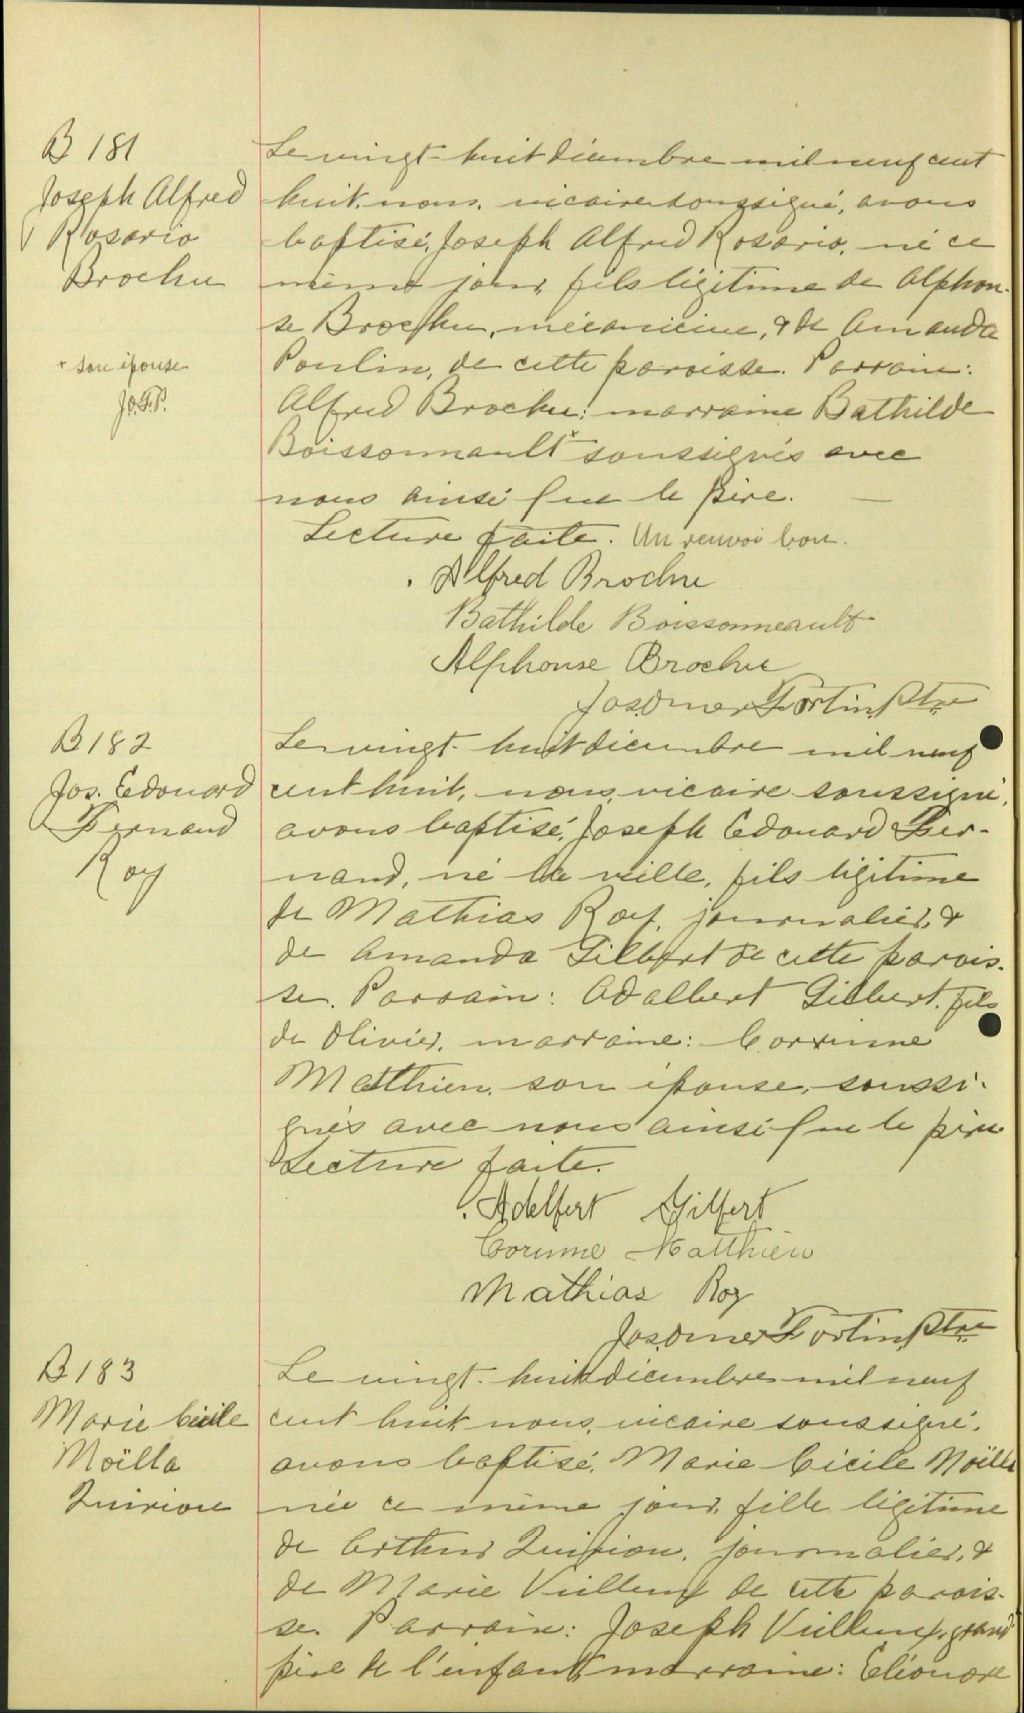 B 181
Joseph Alfred
Rosario
Brochu
+ son épouse
J.O.F.P.
Le vingt-huit décembre mil neuf cent
huit, nous, vicaire soussigné, avons
baptisé, Joseph Alfred Rosario, né ce
même jour, fils légitime de Alphon-
se Brochu, mécanicien, & de Amanda
Poulin, de cette paroisse. Parrain:
Alfred Brochu; marraine Bathilde
Boissonnault + soussignés avec
nous ainsi que le père. —
Lecture faite. Un renvoi bon.
Alfred Brochu
Bathilde Boissonneault
Alphonse Brochu
Jos. Omer Fortin, Ptre
B 182
Jos. Edouard
Fernand
Roy
Le vingt-huit décembre mil neuf
cent huit, nous, vicaire soussigné,
avons baptisé, Joseph Edouard Fer-
nand, né la veille, fils légitime
de Mathias Roy, journalier, &
de Amanda Gilbert de cette parois-
se. Parrain: Adalbert Gilbert, fils
de Olivier, marraine: Corrinne
Matthieu, son épouse, soussi-
gnés avec nous ainsi que le père.
Lecture faite.
Adelbert Gilbert
Corinne Matthieu
Mathias Roy
Jos. Omer Fortin, Ptre
B 183
Marie Cécile
Noëlla
Quirion
Le vingt-huit décembre mil neuf
cent huit, nous, vicaire soussigné,
avons baptisé, Marie Cécile Noëlla
née ce même jour, fille légitime
de Arthur Quirion, journalier, &
de Marie Vuilleux de cette parois-
se. Parrain: Joseph Vuilleux, grand
père de l'enfant, marraine: Eléonore